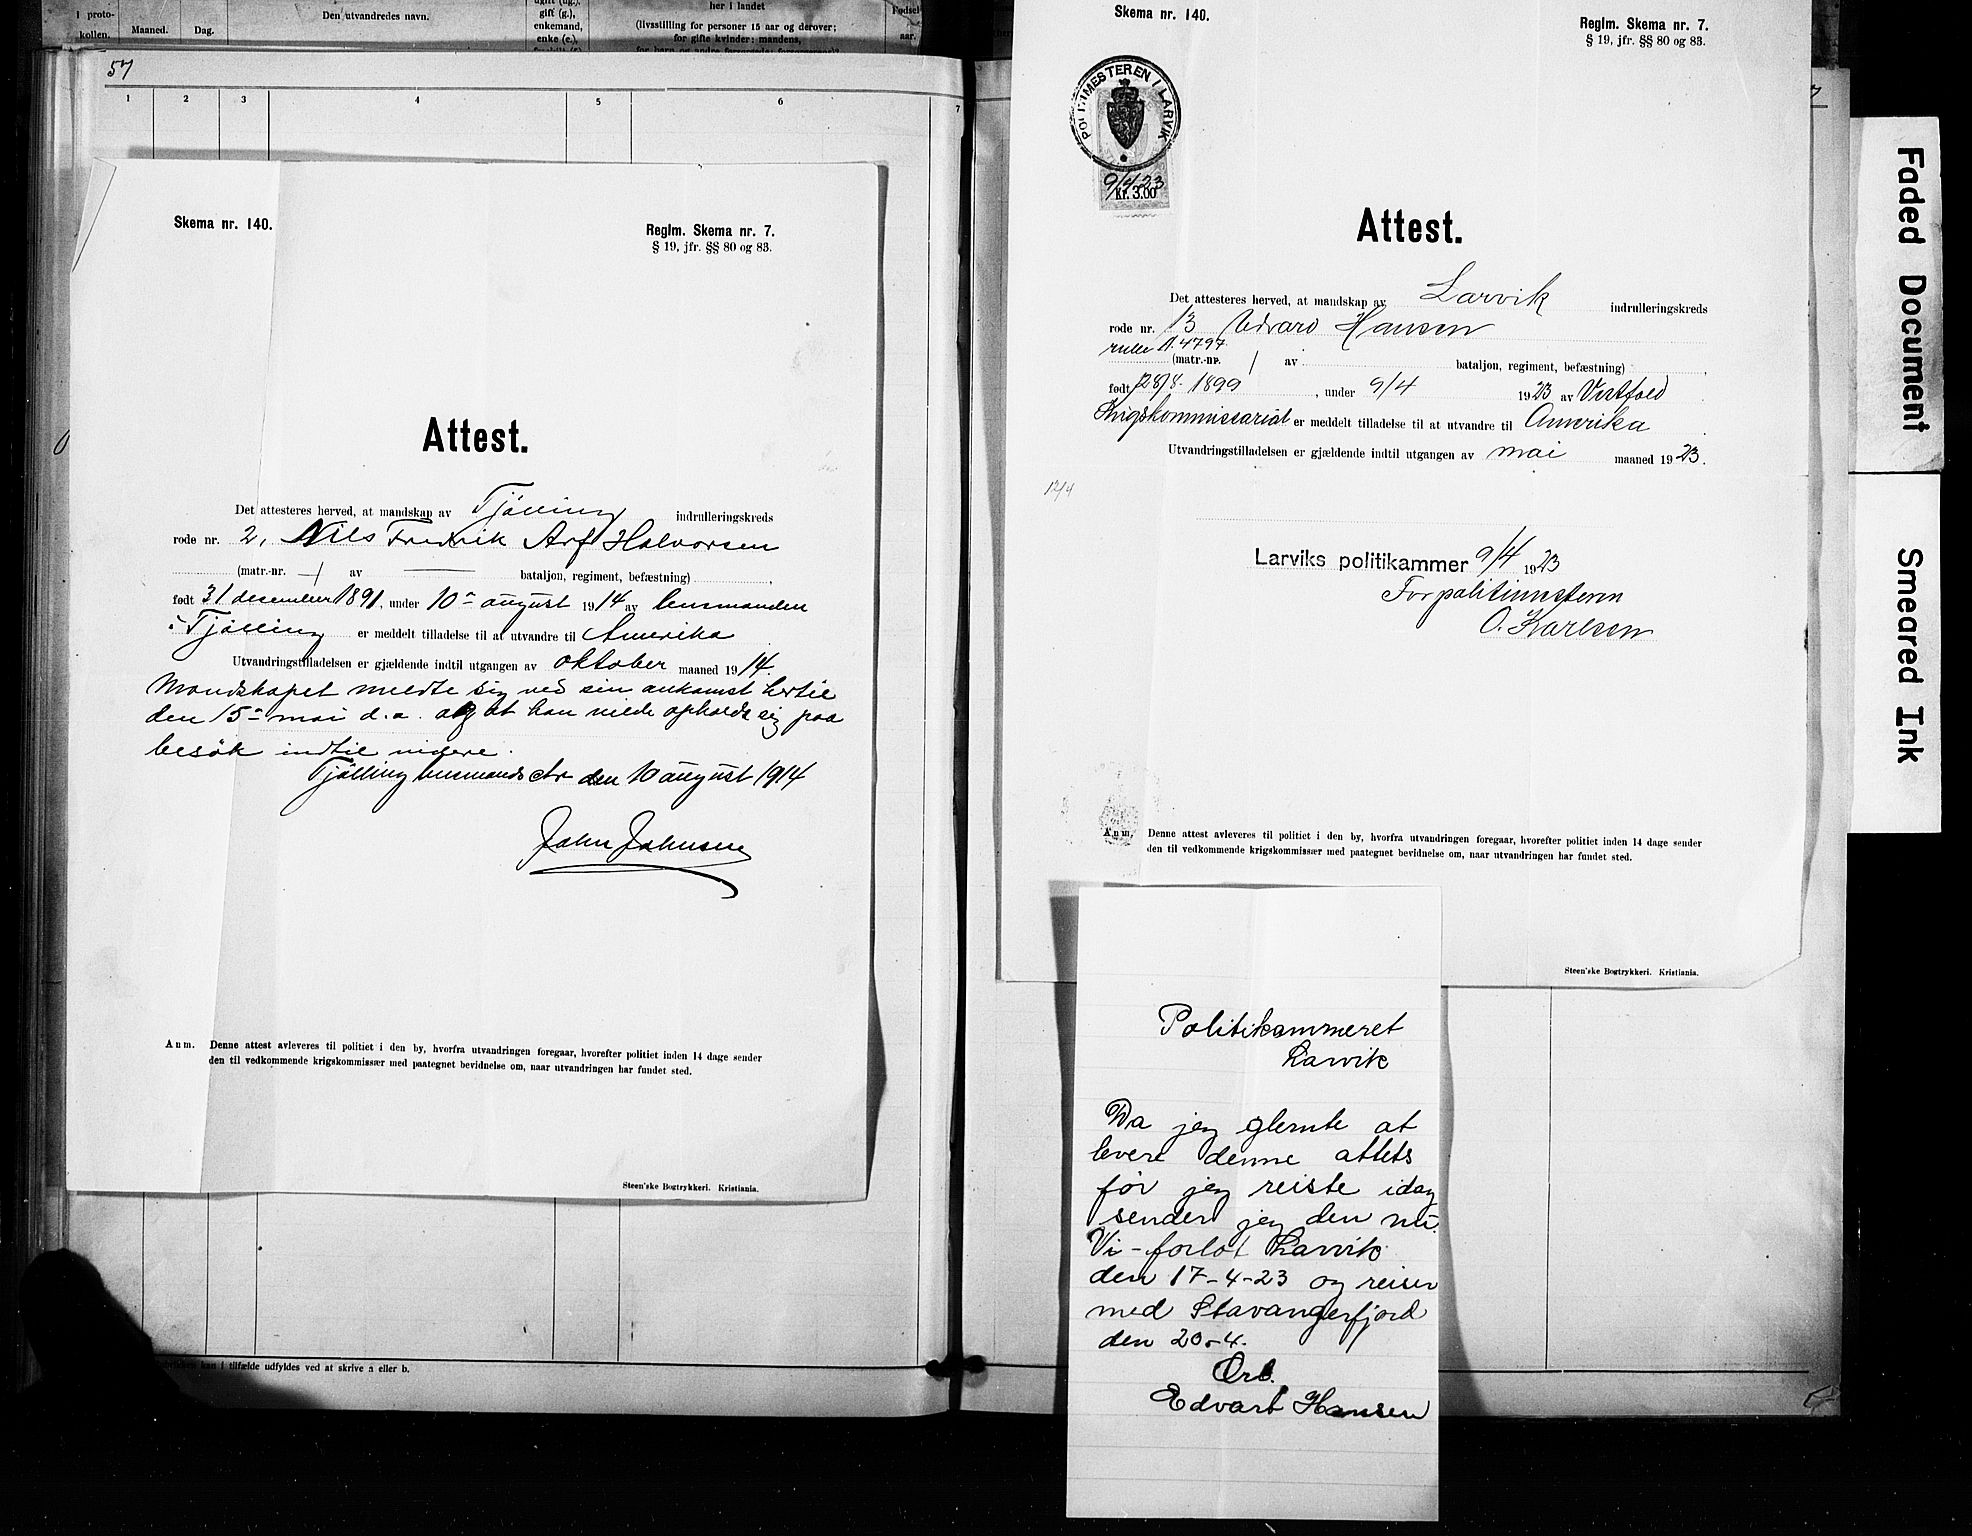 i proto-
kollen.
Maaned.
Dag.
Den utvandredes navn.
gift (g.),
enkemand,
enke (e.),
her i landet
(livsstilling for personer 15 aar og derover;
for gifte kvinder: mandens,
Fødsels-
aar.
57
1 2 3 4 5 6 7
Skema nr. 140.
Reglm. Skema nr. 7.
§ 19, jfr. §§ 80 og 83.
Attest.
Det attesteres herved, at mandskap av Tjölling indrulleringskreds
rode nr. 2, Nils Fredrik Arf Halvorsen
(matr.-nr. — / av — bataljon, regiment, befæstning)
født 31 desember 1891, under 10 august 1914 av lensmanden
i Tjölling er meddelt tilladelse til at utvandre til Amerika
Utvandringstilladelsen er gjældende indtil utgangen av oktober maaned 1914.
Mandskapet meldte sig ved sin ankomst hertil
den 15 mai d.a. og at han vilde opholde sig paa
besök indtil videre.
Tjölling lensmands ktr den 10 august 1914
John Johnsen
Anm. Denne attest avleveres til politiet i den by, hvorfra utvandringen foregaar, hvorefter politiet inden 14 dage sender
den til vedkommende krigskommissær med paategnet bevidnelse om, naar utvandringen har fundet sted.
Steen'ske Bogtrykkeri. Kristiania.
kan i tilfælde utfyldes ved at skrive a eller b.
Skema nr. 140.
Reglm. Skema nr. 7.
§ 19, jfr. §§ 80 og 83.
POLITIMESTEREN I LARVIK
9/4 23
Kr. 3.00
Attest.
Det attesteres herved, at mandskap av Larvik indrulleringskreds
rode nr. 13 Edvard Hansen
rulle n. 4797
(matr.-nr. / av bataljon, regiment, befæstning)
født 28/8. 1899, under 9/4 1923 av Vestfold
Krigskommissariat er meddelt tilladelse til at utvandre til Amerika
Utvandringstilladelsen er gjældende indtil utgangen av mai maaned 1923.
17/4
Larviks politikammer 9/4 1923
For politimesteren
O. Karlsen
Anm. Denne attest avleveres til politiet i den by, hvorfra utvandringen foregaar, hvorefter politiet inden 14 dage sender
den til vedkommende krigskommissær med paategnet bevidnelse om, naar utvandringen har fundet sted.
Steen'ske Bogtrykkeri. Kristiania.
Politikammeret
Larvik
Da jeg glemte at
levere denne attets
før jeg reiste idag
sender jeg den nu.
Vi - forlot Larvik
den 17-4-23 og reiser
med Stavangerfjord
den 20-4.
Erb.
Edvart Hansen
Faded Document
Smeared Ink